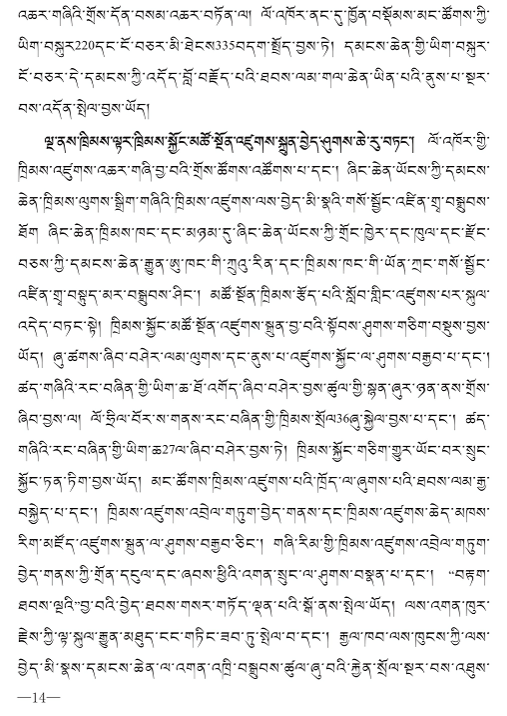 འཆར་གཞིའི་གྲོས་དོན་བསམ་འཆར་བཏོན་ལ། ལོ་འཁོར་ནང་དུ་ཁྱོན་བསྡོམས་མང་ཚོགས་ཀྱི་
ཡིག་བསྐུར220དང་ངོ་བཅར་མི་ཐེངས335བདག་སྤྲོད་བྱས་ཏེ། དམངས་ཆེན་གྱི་ཡིག་བསྐུར་
ངོ་བཅར་དེ་དམངས་ཀྱི་འདོད་བློ་བརྗོད་པའི་ཐབས་ལམ་གལ་ཆེན་ཡིན་པའི་ནུས་པ་སྔར་
བས་འདོན་སྤེལ་བྱས་ཡོད།
ལྔ་ནས་ཁྲིམས་ལྟར་ཁྲིམས་སྐྱོང་མཚོ་སྔོན་འཛུགས་སྐྲུན་བྱེད་ཤུགས་ཆེ་རུ་བཏང་། ལོ་འཁོར་གྱི་
ཁྲིམས་འཛུགས་འཆར་གཞི་བྱ་བའི་གྲོས་ཚོགས་འཚོགས་པ་དང་། ཞིང་ཆེན་ཡོངས་ཀྱི་དམངས་
ཆེན་ཁྲིམས་ལུགས་སྒྲིག་གཞིའི་ཁྲིམས་འཛུགས་ལས་བྱེད་མི་སྣའི་གསོ་སྦྱོང་འཛིན་གྲྭ་བསྒྲུབས་
ཐོག ཞིང་ཆེན་ཁྲིམས་ཁང་དང་མཉམ་དུ་ཞིང་ཆེན་ཡོངས་ཀྱི་གྲོང་ཁྱེར་དང་ཁུལ་དང་རྫོང་
བཅས་ཀྱི་དམངས་ཆེན་རྒྱུན་ཨུ་ཁང་གི་ཀྲུའུ་རིན་དང་ཁྲིམས་ཁང་གི་ཡོན་ཀྲང་གསོ་སྦྱོང་
འཛིན་གྲྭ་བསྟུད་མར་བསྒྲུབས་ཤིང་། མཚོ་སྔོན་ཁྲིམས་རྩོད་པའི་སློབ་གླིང་འཛུགས་པར་སྐུལ་
འདེད་བཏང་སྟེ། ཁྲིམས་སྐྱོང་མཚོ་སྔོན་འཛུགས་སྐྲུན་བྱ་བའི་སྟོབས་ཤུགས་གཅིག་བསྡུས་བྱས་
ཡོད། ཞུ་ཚགས་ཞིབ་བཤེར་ལམ་ལུགས་དང་ནུས་པ་འཛུགས་སྐྱོང་ལ་ཤུགས་བརྒྱབ་པ་དང་།
ཚད་གཞིའི་རང་བཞིན་གྱི་ཡིག་ཆ་ཐོ་འགོད་ཞིབ་བཤེར་བྱས་ཚུལ་གྱི་སྙན་ཞུར་ཉན་ནས་གྲོས་
ཞིབ་བྱས་ལ། ལོ་ཧྲིལ་བོར་ས་གནས་རང་བཞིན་གྱི་ཁྲིམས་སྲོལ36ཞུ་སྐྱེལ་བྱས་པ་དང་། ཚད་
གཞིའི་རང་བཞིན་གྱི་ཡིག་ཆ27ལ་ཞིབ་བཤེར་བྱས་ཏེ། ཁྲིམས་སྐྱོང་གཅིག་གྱུར་ཡོང་བར་སྲུང་
སྐྱོང་ཏན་ཏིག་བྱས་ཡོད། མང་ཚོགས་ཁྲིམས་འཛུགས་པའི་ཁྲོད་ལ་ཞུགས་པའི་ཐབས་ལམ་རྒྱ་
བསྐྱེད་པ་དང་། ཁྲིམས་འཛུགས་འབྲེལ་གཏུག་བྱེད་གནས་དང་ཁྲིམས་འཛུགས་ཆེད་མཁས་
རིག་མཛོད་འཛུགས་སྐྲུན་ལ་ཤུགས་བརྒྱབ་ཅིང་། གཞི་རིམ་གྱི་ཁྲིམས་འཛུགས་འབྲེལ་གཏུག་
བྱེད་གནས་ཀྱི་གྲོན་དངུལ་དང་ཞབས་ཕྱིའི་འགན་སྲུང་ལ་ཤུགས་བསྣན་པ་དང་། “བརྟག་
ཐབས་ལྔའི”བྱ་བའི་བྱེད་ཐབས་གསར་གཏོད་ལྡན་པའི་སྒོ་ནས་སྤེལ་ཡོད། ལས་འགན་ཁུར་
རྗེས་ཀྱི་ལྟ་སྐུལ་རྒྱུན་མཐུད་ངང་གཏིང་ཟབ་ཏུ་སྤེལ་བ་དང་། རྒྱལ་ཁབ་ལས་ཁུངས་ཀྱི་ལས་
བྱེད་མི་སྣས་དམངས་ཆེན་ལ་འགན་འཁྲི་བསྒྲུབས་ཚུལ་ཞུ་བའི་རྐྱེན་སྲོལ་སྔར་བས་འཐུས་
—14—